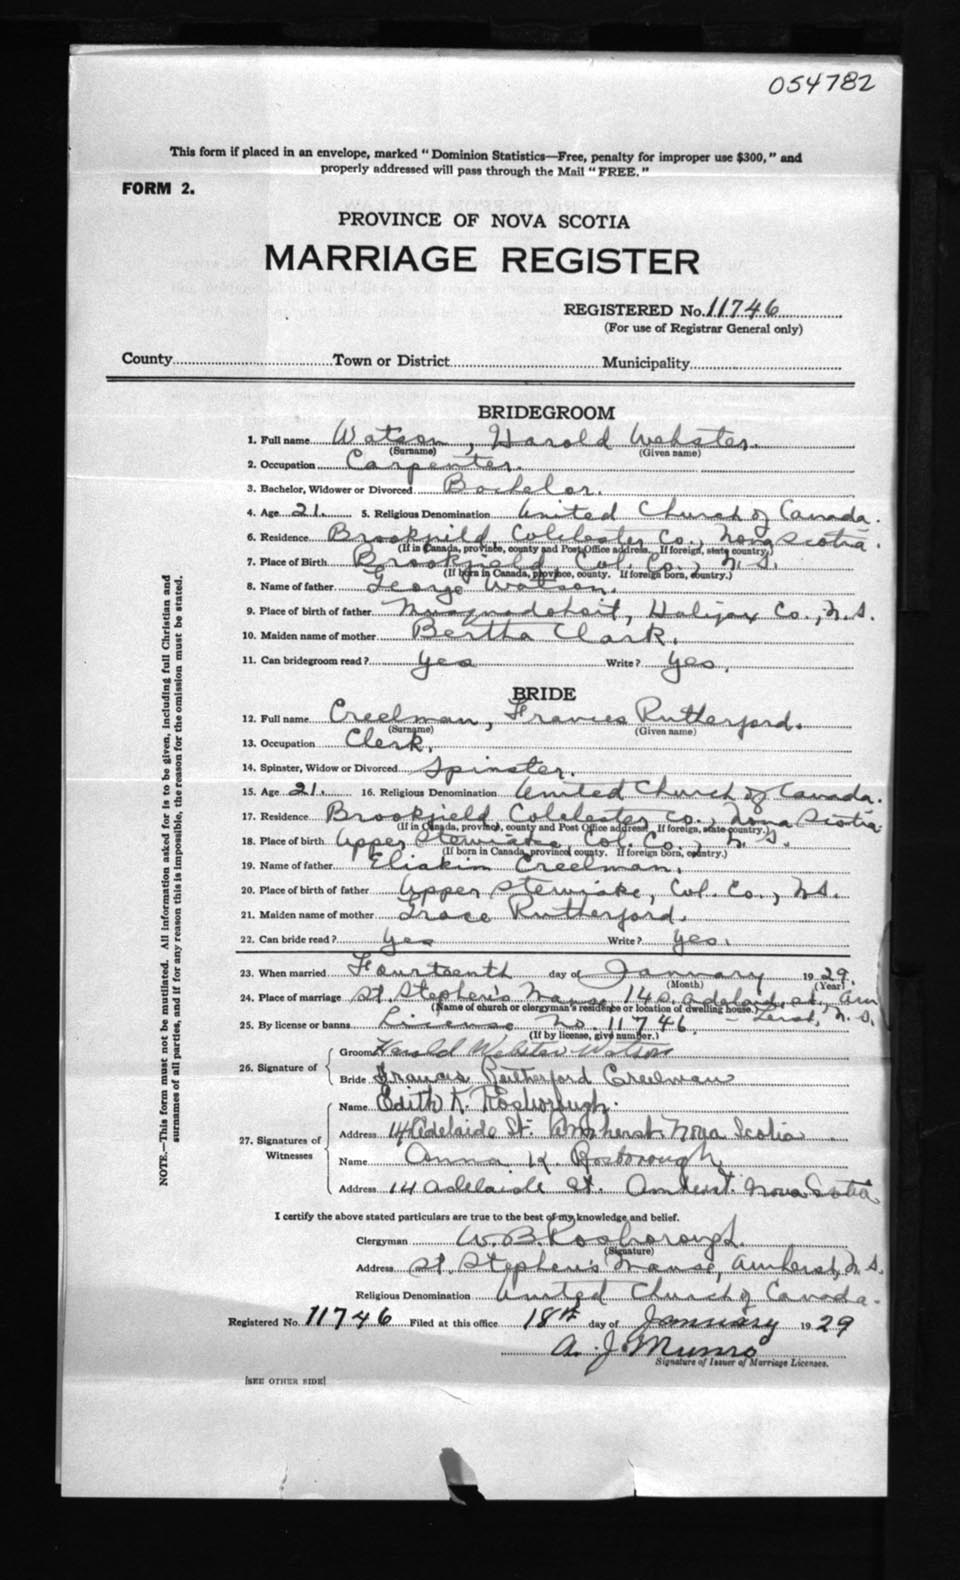 054782
This form if placed in an envelope, marked "Dominion Statistics—Free, penalty for improper use $300," and
properly addressed will pass through the Mail "FREE."
FORM 2.
PROVINCE OF NOVA SCOTIA
MARRIAGE REGISTER
REGISTERED No. 11746
(For use of Registrar General only)
County Town or District Municipality
BRIDEGROOM
1. Full name Watson, Harold Webster.
(Surname) (Given name)
2. Occupation Carpenter.
3. Bachelor, Widower or Divorced Bachelor.
4. Age 21. 5. Religious Denomination United Church of Canada.
6. Residence Brookfield, Colchester Co., Nova Scotia.
(If in Canada, province, county and Post Office address. If foreign, state country.)
7. Place of Birth Brookfield, Col. Co., N.S.
(If born in Canada, province, county. If foreign born, country.)
8. Name of father George Watson.
9. Place of birth of father Musquodoboit, Halifax Co., N.S.
10. Maiden name of mother Bertha Clark.
11. Can bridegroom read? Yes Write? Yes.
BRIDE
12. Full name Creelman, Frances Rutherford.
(Surname) (Given name)
13. Occupation Clerk.
14. Spinster, Widow or Divorced Spinster.
15. Age 21. 16. Religious Denomination United Church of Canada.
17. Residence Brookfield Colchester Co., Nova Scotia
(If in Canada, province, county and Post Office address. If foreign, state country.)
18. Place of birth Upper Stewiacke, Col. Co., N.S.
(If born in Canada, province, county. If foreign born, country.)
19. Name of father Eliakim Creelman.
20. Place of birth of father Upper Stewiake, Col. Co., N.S.
21. Maiden name of mother Grace Rutherford.
22. Can bride read? Yes Write? Yes.
23. When married Fourteenth day of January 1929.
(Month) (Year)
24. Place of marriage St. Stephen's Manse, 14 Adelaide St., Am
(Name of church or clergyman's residence or location of dwelling house.) - herst, N.S.
25. By license or banns License No. 11746.
(If by license, give number.)
26. Signature of
Groom Harold Webster Watson
Bride Frances Rutherford Creelman
27. Signatures of Witnesses
Name Edith K. Rosborough.
Address 14 Adelaide St. Amherst Nova Scotia
Name Anna K Rosborough
Address 14 Adelaide St. Amherst. Nova Scotia
I certify the above stated particulars are true to the best of my knowledge and belief.
Clergyman W. B. Rosborough.
(Signature)
Address St. Stephen's Manse, Amherst, N.S.
Religious Denomination United Church of Canada.
Registered No. 11746 Filed at this office 18th day of January 1929
A. J. Munro
Signature of Issuer of Marriage Licenses.
[SEE OTHER SIDE]
NOTE.—This form must not be mutilated. All information asked for is to be given, including full Christian and
surnames of all parties, and if for any reason this is impossible, the reason for the omission must be stated.